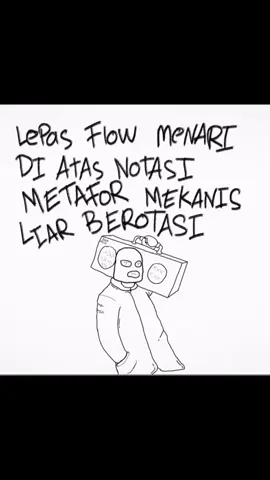 LePas FLOW MeNARI
DI AtAS NOTASI
METAFOR MEKANIS
LIAR BEROTASI